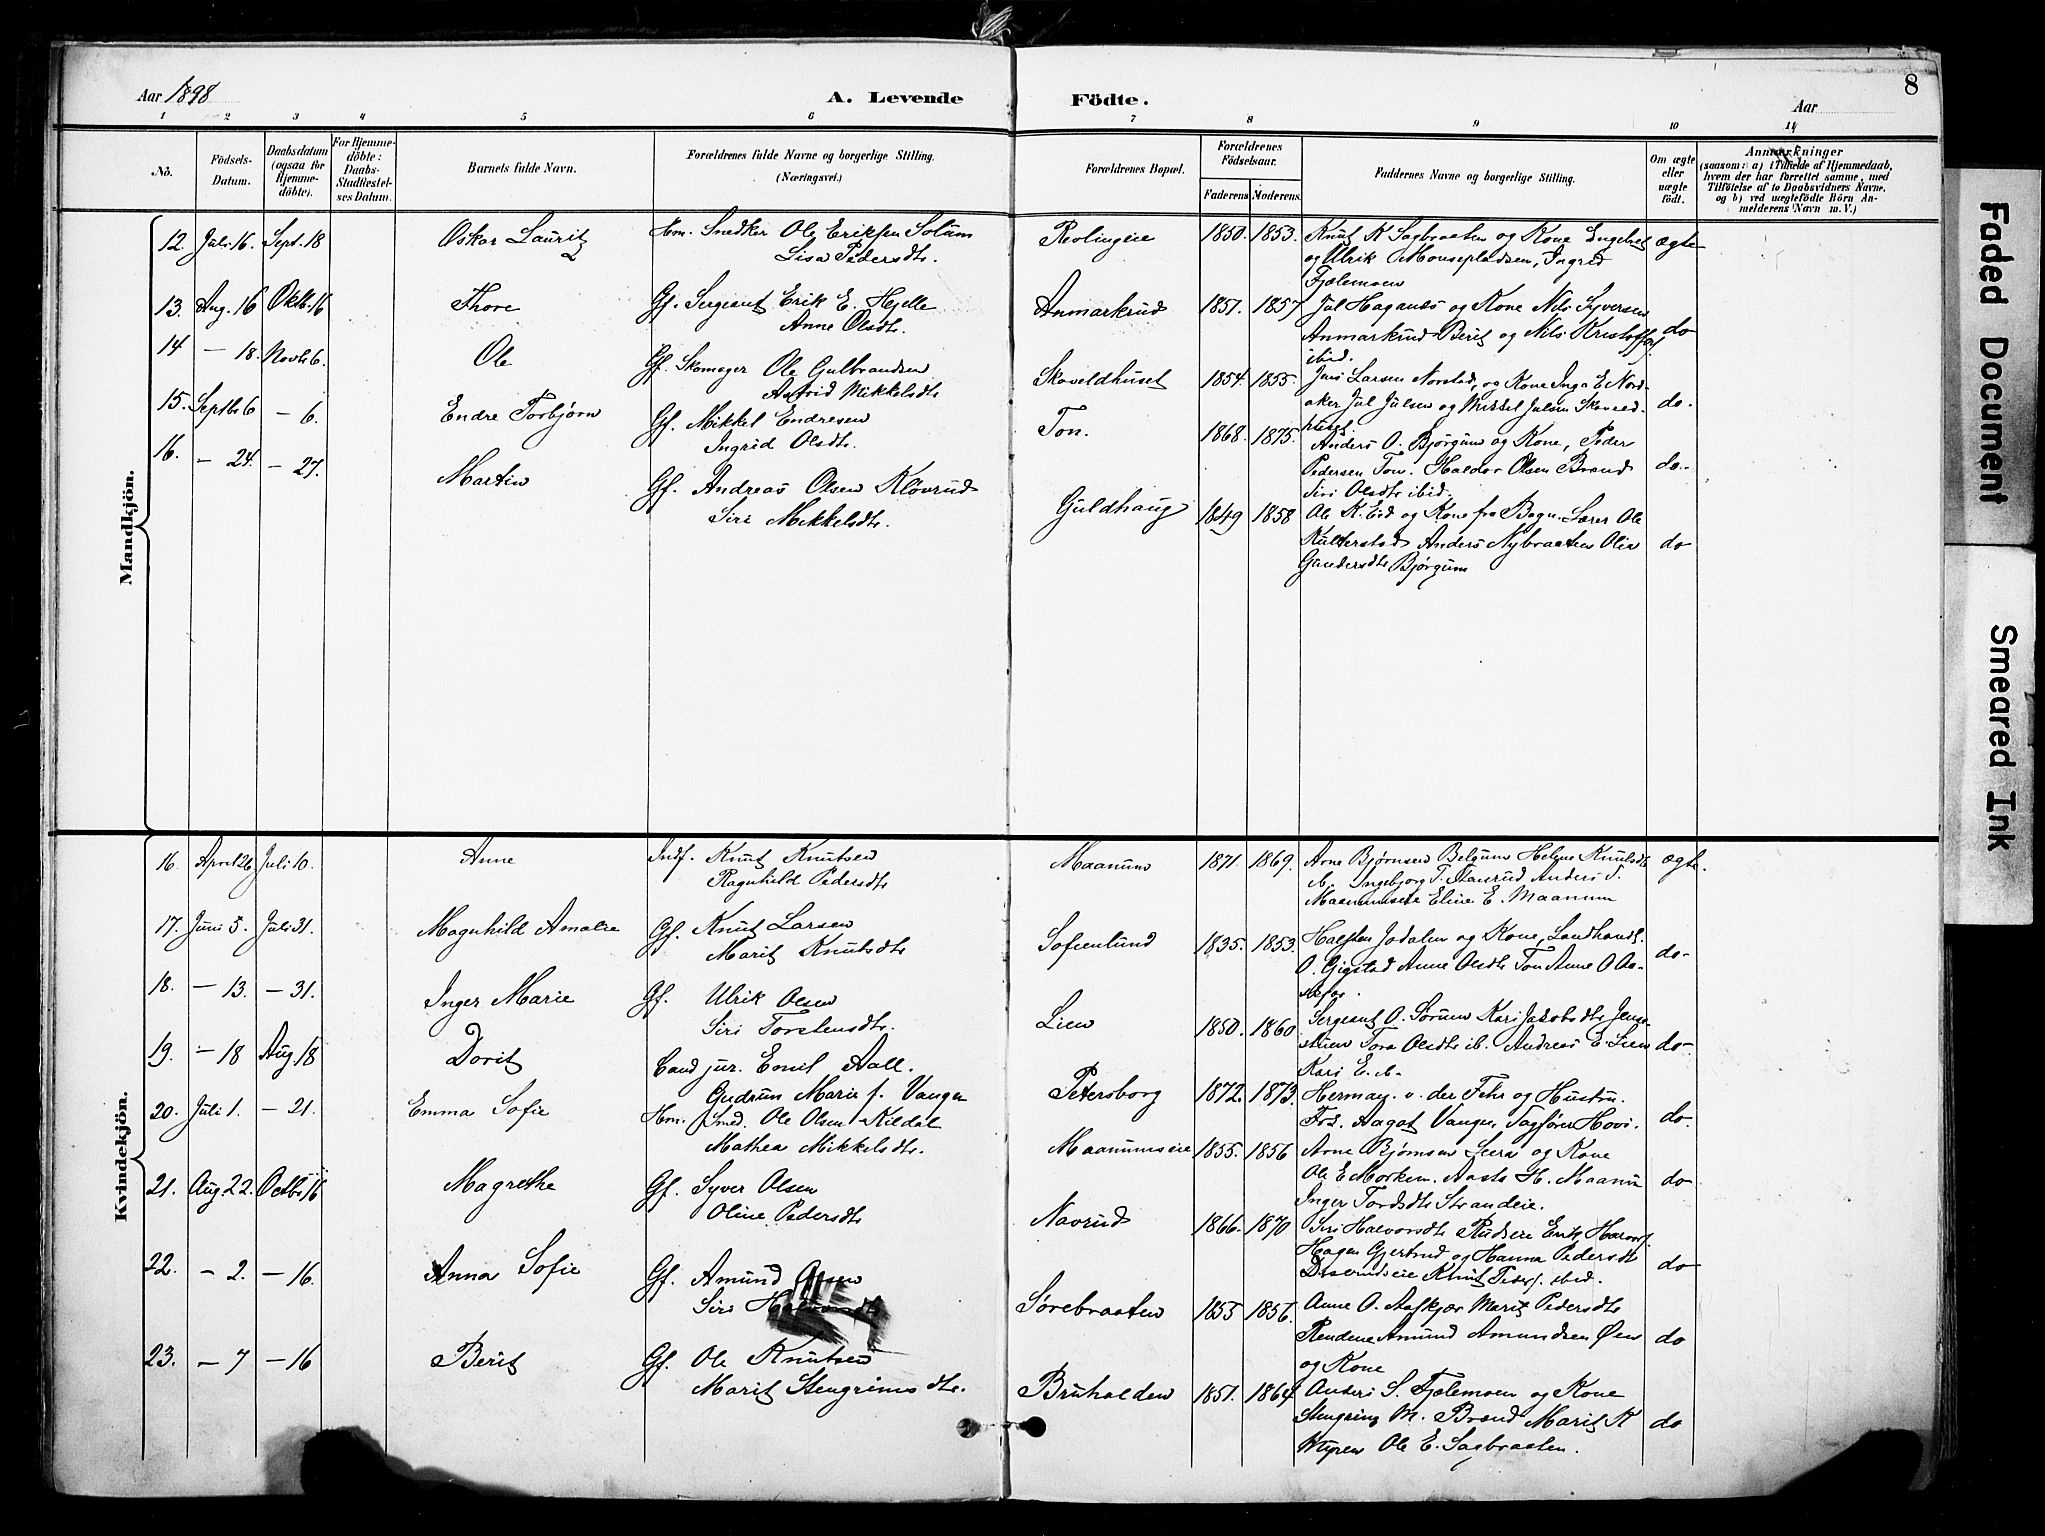 Aar 1898
A. Levende Födte.
Aar
8
1 2 3 4 5 6 7 8 9 10 11
No.
Födsels-Datum.
Daabsdatum (ogsaa for Hjemme-döbte).
For Hjemme-döbte: Daabs-Stadfæstel-ses Datum.
Barnets fulde Navn.
Forældrenes fulde Navne og borgerlige Stilling. (Næringsvei.)
Forældrenes Bopæl.
Forældrenes Födselsaar.
Faderens. Moderens.
Faddernes Navne og borgerlige Stilling.
Om ægte eller uægte födt.
Anmærkninger
(saasom: a) i Tilfælde af Hjemmedaab, hvem der har forrettet samme, med Tilföielse af to Daabsvidners Navne, og b) ved uægtefödte Börn An-melderens Navn m. V.)
Mandkjön.
12. Juli 16. Sept. 18 Oskar Lauritz Hm. Snedker Ole Eriksen Solum
Lisa Pedersdtr. 1850. 1853. Knut K Sagbraaten og Kone Engebret
og Ulrik Mousepladsen, Ingrid
Fjælemoen ægte
13. Aug. 16 Oktb. 16 Thore Gf. Sergeant Erik E. Hjelle
Anne Olsdtr. Anmarkrud 1851. 1857 Jul Haganæs og Kone Nils Syversen
Anmarkrud Berit og Nils Kristoffers.
ibid. do
14 – 18. Novb. 6. Ole Gf. Skomager Ole Gulbrandsen
Astrid Mikkelsdtr. Skoveldhuset 1854. 1855. Jens Larsen Norstad, og Kone Inga E Nord-
aker Jul Julsen og Mikkel Julsen Skoveld-
huset. do.
15. Septb. 6 – 6. Endre Torbjørn Gf. Mikkel Endresen
Ingrid Olsdtr. Ton. 1868. 1875. Anders O. Bjørgum og Kone, Peder
Pedersen Ton. Haldor Olsen Brand
Siri Olsdtr ibid. do.
16. – 24. – 27. Martin Gf. Andreas Olsen Kløvrud
Siri Mikkelsdtr. Guldhaug 1849 1858 Ole K. Eid og Kone fra Bagn. Lærer Ole
Anders Nybraaten
Bjørgum do
Kvindekjön.
16. April 26. Juli 10. Anne Indf. Knut Knutsen
Ragnhild Pedersdtr Maanum 1871. 1869. Arne Bjørnsen Belgum Helene Knutsdtr
ib. Ingebjørg T. Staurud Anders T.
Maanumseie Eline E. Maanum ægte.
17. Juni 5. Juli 31. Magnhild Amalie Gf. Knut Larsen
Marit Knutsdtr Sofienlund 1835. 1853. Halsten Jodalen og Kone, Landhandl.
O. Gigstad Anne Olsdtr Ton Anne O Aa-
do-
18. – 13. – 31. Inger Marie Gf. Ulrik Olsen
Siri Torstensdtr. Lien 1850. 1860 Sergeant O. Sørum Kari Jakobsdtr Jense-
stuen Tora Olsdtr ib. Andreas E. Lien
Kari E. ib. do-
19. – 18 Aug. 18 Dorit Cand jur. Emil Aall.
Gudrun Marie f. Vangen Petersborg 1872. 1873. Herman v. der Fehr og Hustru.
Frk. Aagot Vangen, Sagfører Hovi. do.
20. Juli 1. – 21. Emma Sofie Hm. Smed. Ole Olsen Kildal
Mathea Mikkelsdtr. Maanumseie 1855. 1856 Arne Bjørnsen Leera og Kone
Ole E Morken. Aasta H. Maanum
Inger Tordsdtr Strandeie. do
21. Aug. 22. Octb. 16 Magrethe Gf. Syver Olsen
Oline Pedersdtr Navrud 1866. 1870 Siri Halvorsdtr Rudseie Erik Halvors.
Hagen Gjertrud og Hanna Pedersdt
Knut Peders. ibid. do
22. – 2. – 16. Anna Sofie Gf. Amund Olsen
Siri Sørebraaten 1855 1856. Anne O. Aafkjær Marit Pedersdtr
Rendene Amund Amundsen Øen
og Kone do
23. – 7 – 16 Berit Gf. Ole Knutsen
Marit Stengrimsdtr. Bruhalden 1851. 1864 Anders S. Fjælemoen og Kone
Stengrim M. Brand Marit K
Ole E. Sagbraaten. do
Faded Document
Smeared Ink